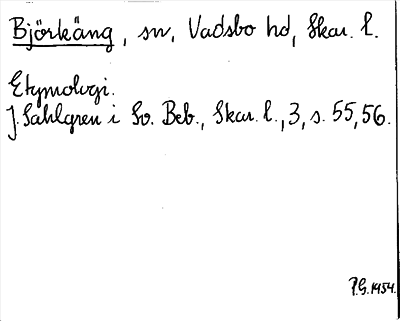 Björkäng, sn, Vadsbo hd, Skar. l.
Etymologi.
J. Sahlgren i Sv. Beb., Skar. l., 3, s. 55, 56.
P.G. 1954.